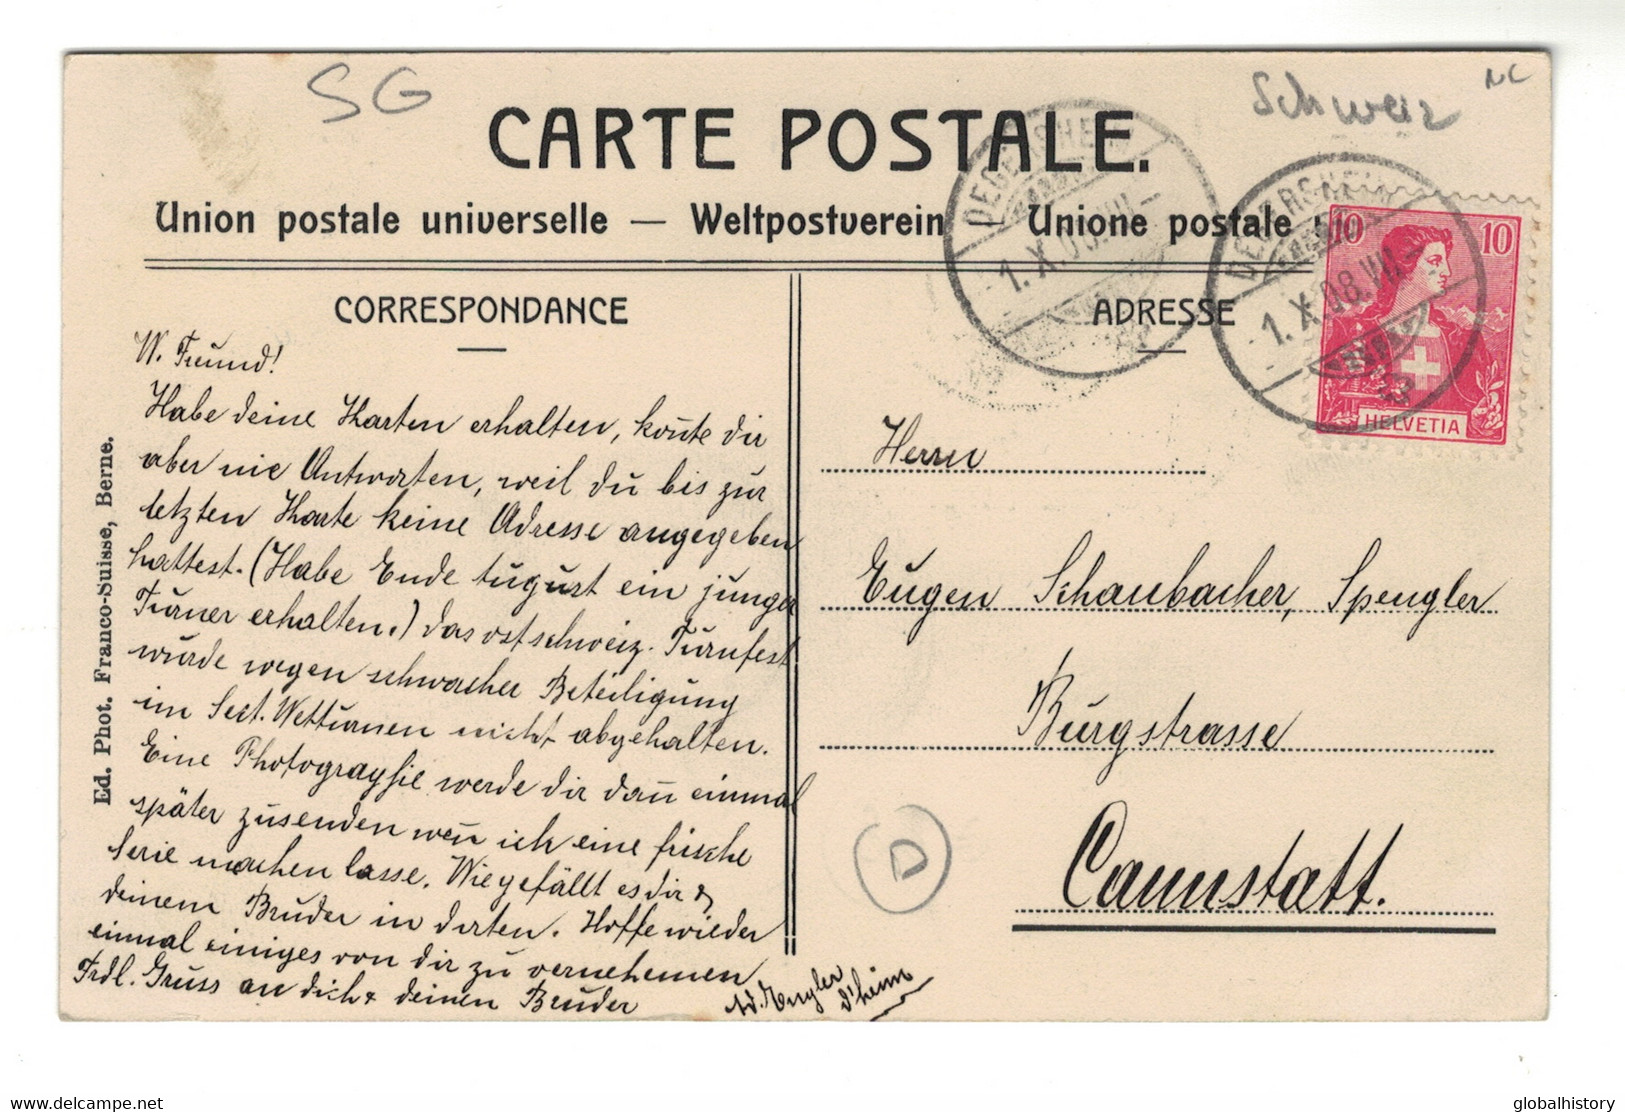 SG
Schweiz
NC
CARTE POSTALE.
Union postale universelle — Weltpostverein — Unione postale
DEGERSHEIM
1.X.08.VII–
DEGERSHEIM
1.X.08.VII–
10 10
HELVETIA
CORRESPONDANCE
W. Freund!
Habe deine Karten erhalten, kon̄te dir
aber nie Antworten, weil du bis zur
letzten Karte keine Adresse angegeben
hattest. (Habe Ende August ein junger
Turner erhalten.) Das ostschweiz. Turnfest
wurde wegen schwacher Beteiligung
im Sect. Wetturnen nicht abgehalten.
Eine Photograpfie werde dir dan̄ einmal
später zusenden wen̄ ich eine frische
Serie machen lasse. Wie gefällt es dir &
deinem Bruder in dorten. Hoffe wieder
einmal einiges von dir zu vernehemen
Frdl. Gruss an dich & deinen Bruder
Ad. Engler
D'heim
Ed. Phot. Franco-Suisse, Berne.
ADRESSE
Herrn
Eugen Schaubacher, Spengler
Burgstrasse
Cannstatt.
D
delcampe.net
globalhistory